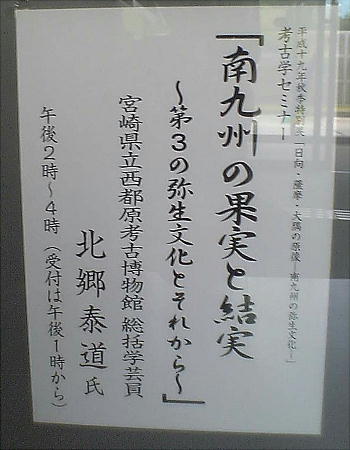 平成十九年秋季特別展「日向・薩摩・大隅の原像－南九州の弥生文化－」
考古学セミナー
「南九州の果実と結実
～第３の弥生文化とそれから～」
宮崎県立西都原考古博物館 総括学芸員
北郷泰道氏
午後２時～４時（受付は午後１時から）